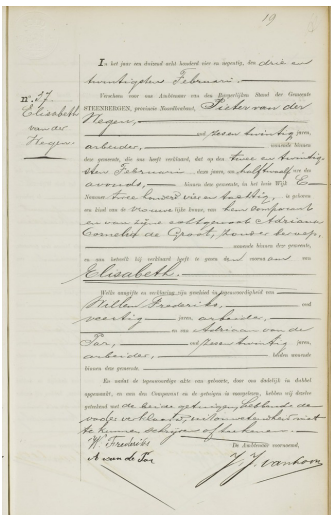 19
In het jaar een duizend acht honderd vier en negentig, den drie en
twintigsten Februari.
Verscheen voor ons Ambtenaar van den Burgerlijken Stand der Gemeente
STEENBERGEN, provincie Noordbrabant, Pieter van der
Vegen,
oud zes en twintig jaren,
arbeider, wonende binnen
deze gemeente, die ons heeft verklaard, dat op den twee en twintig-
sten Februari dezes jaars, ten half twaalf ure des
avonds, binnen deze gemeente, in het huis Wijk E
Nummer twee honderd vier en tachtig, is geboren
een kind van de vrouwelijke kunne, van hem comparant
en van zijne echtgenoot Adriana
Cornelia de Groot, zonder beroep,
wonende binnen deze gemeente,
en aan hetwelk hij verklaard heeft te geven den voornaam van
Elisabeth.
Welke aangifte en verklaring zijn geschied in tegenwoordigheid van
Willem Frederiks, oud
veertig jaren, arbeider,
en van Adriaan van de
Par, oud zes en twintig jaren,
arbeider, beiden wonende
binnen deze gemeente.
En nadat de tegenwoordige akte van geboorte, door ons dadelijk in dubbel
opgemaakt, en aan den Comparant en de getuigen is voorgelezen, hebben wij dezelve
geteekend met de beide getuigen, hebbende de
vader verklaard, uit onwetendheid niet
te kunnen schrijven of teekenen.
W. Frederiks
A van de Par
De Ambtenaar voornoemd,
J. J. van Loon
n°. 27.
Elisabeth
van der
Vegen.